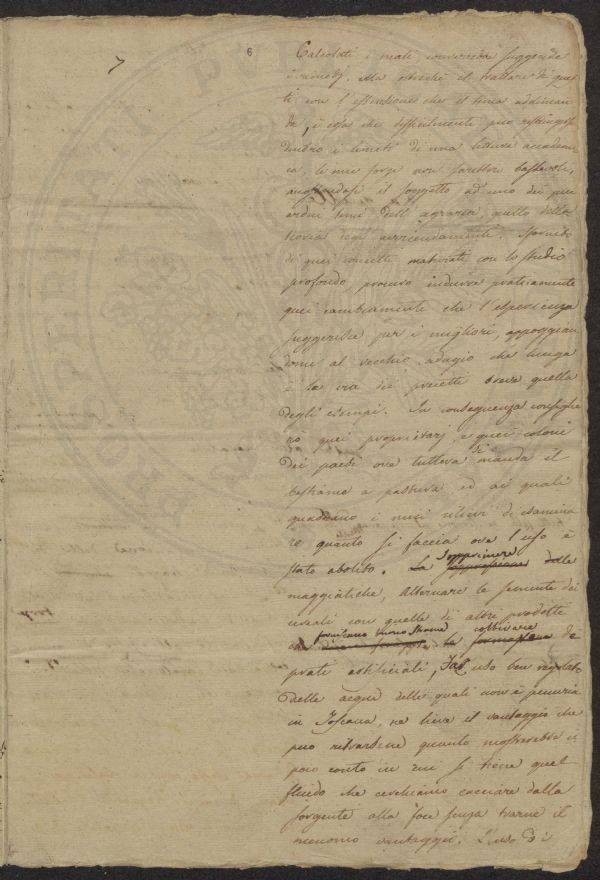 7
6
Calcolati i mali converrebbe suggerirne
i rimedj. Ma siccome il trattare di ques
ti con l'estensione che il tema addiman
da, è cosa che difficilmente puo restringersi
dentro i limiti di una lettura accademi
ca, le mie forze non sarebbero bastevoli,
aspettandosi il soggetto ad uno dei piu
ardui temi dell'agraria, quello della
teoria degli avvicendamenti. Sfornito
di quei concetti maturati con lo studio
profondo, procuro indurre praticamente
quei cambiamenti che l'esperienza
suggerisce per i migliori, appoggian
domi al vecchio adagio che lunga
è la via dei precetti breve quella
degli esempi. In conseguenza consiglie
rò quei proprietarj, e quei coloni
dei paesi ove tuttora si manda il
bestiame a pastura ed ai quali
quadrano i miei rilievi di esamina
re quanto si faccia ove l'uso è
stato abolito. La sopprimere delle
maggiatiche, Alternare le semente dei
cereali con quelle di altri prodotti
che forniscano buono strame coltivare de
prati artificiali, Tal uso ben regolato
delle acque delle quali non è penuria
in Toscana, ne lieve il vantaggio che
puo ritrarsene quanto mostrerebbe il
poco conto in cui si tiene quel
fluido che cerchiamo cacciare dalla
sorgente alla foce senza trarne il
menomo vantaggio. L'uso di